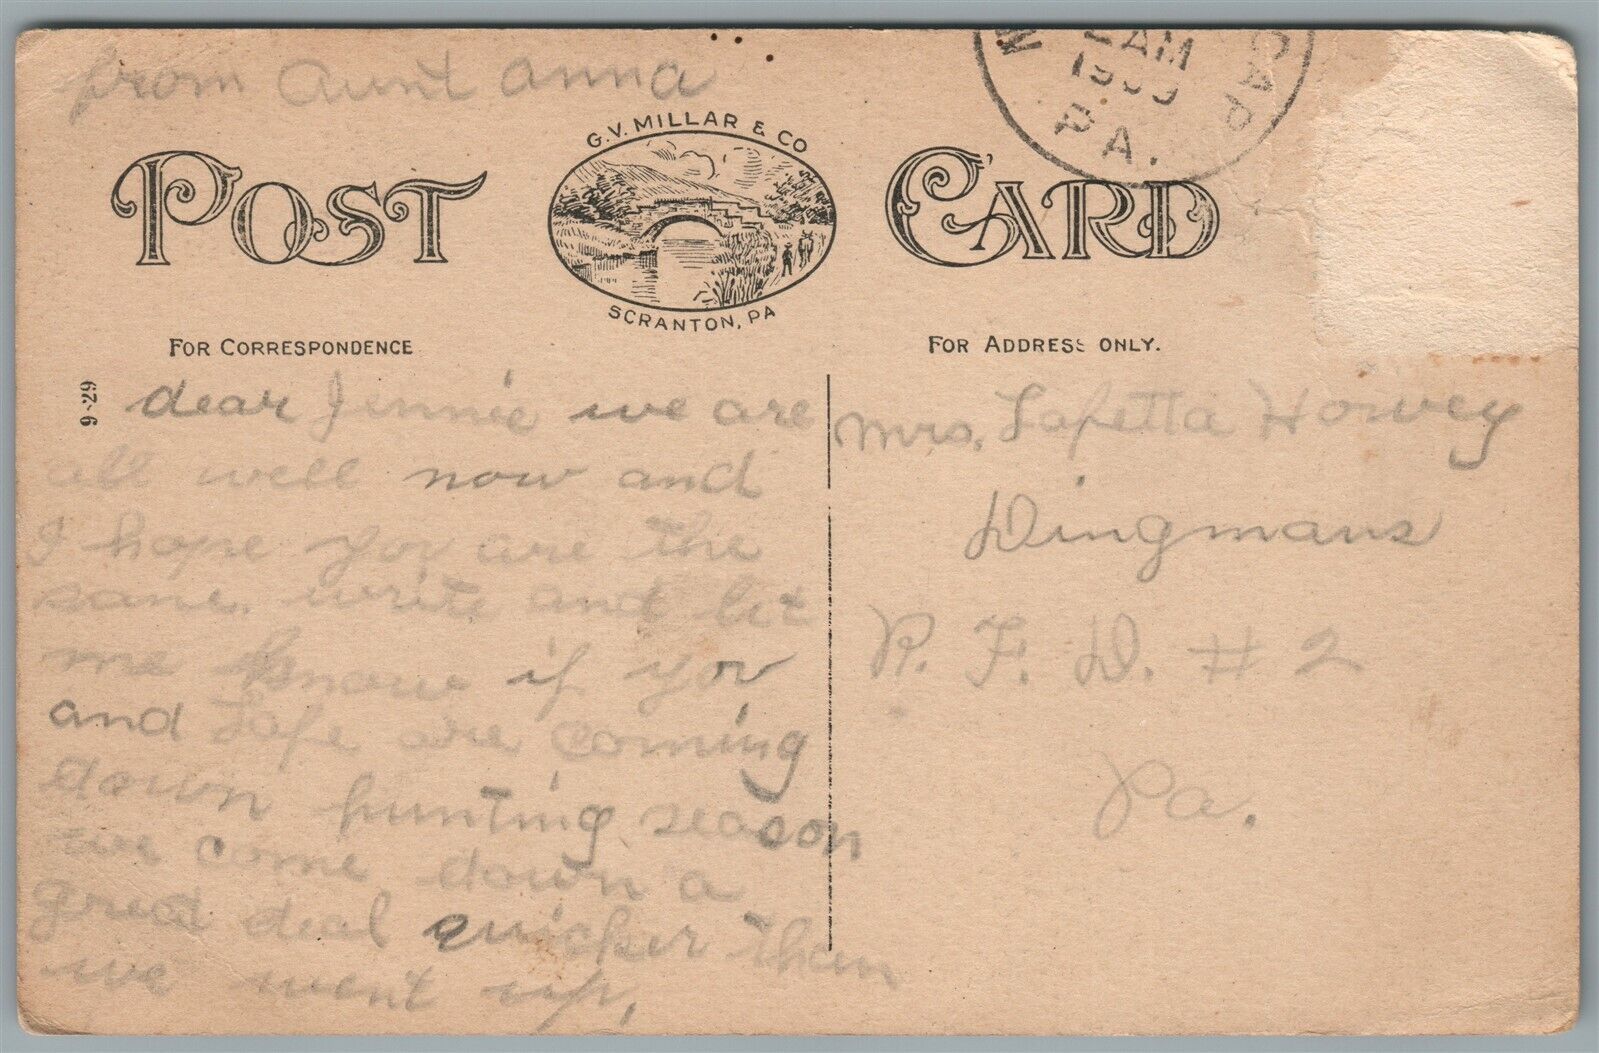 from Aunt Anna
AM
1909
PA.
G.V. MILLAR & CO
POST CARD
SCRANTON, PA
FOR CORRESPONDENCE
FOR ADDRESS ONLY.
9-29
dear Jennie we are
all well now and
I hope you are the
same. write and let
me know if you
and Lafe are coming
down hunting season
we come down a
great deal quicker than
we went up.
Mrs. Lafetta Howey
Dingmans
R. F. D. # 2
Pa.